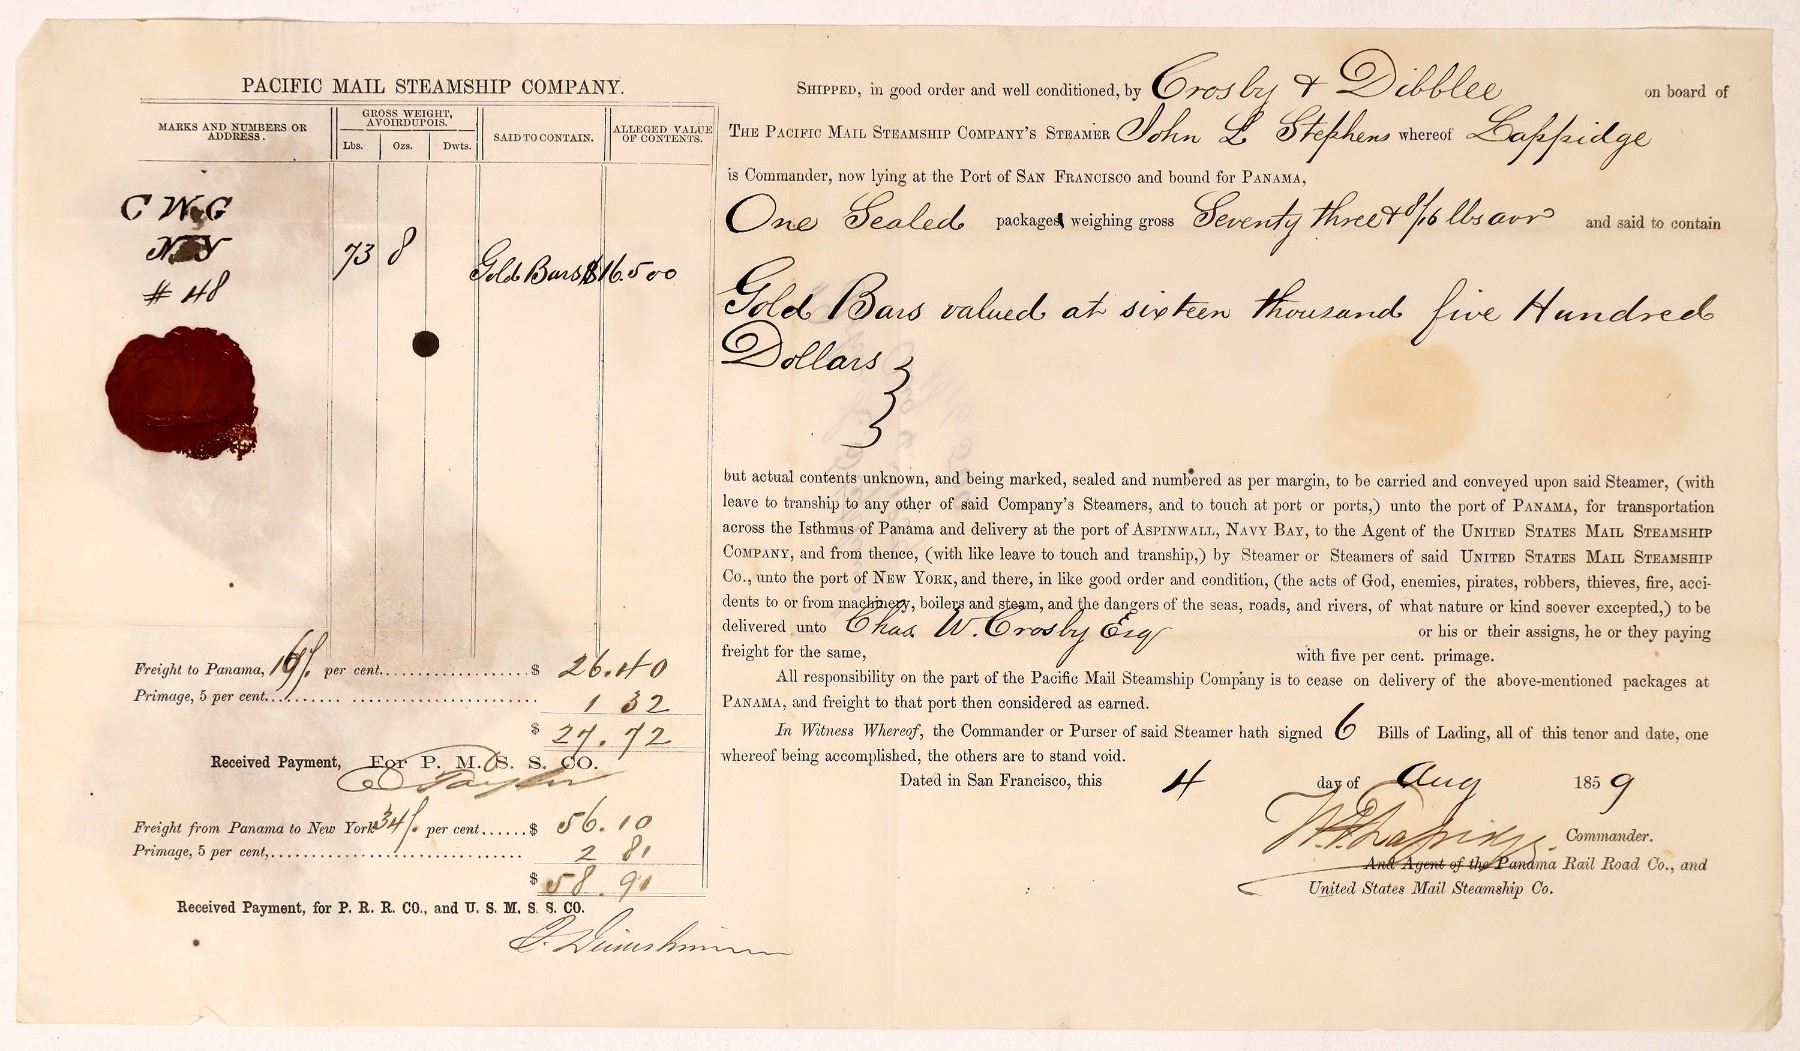 PACIFIC MAIL STEAMSHIP COMPANY.
MARKS AND NUMBERS OR ADDRESS.
GROSS WEIGHT, AVOIRDUPOIS.
Lbs. Ozs. Dwts.
SAID TO CONTAIN.
ALLEGED VALUE OF CONTENTS.
C W C
N Y
# 48
73 8 Gold Bars $16.500
Freight to Panama, 16/. per cent. $ 26.40
Primage, 5 per cent. 1 32
$ 27.72
Received Payment, For P. M. S. S. CO.
Freight from Panama to New York 34/. per cent $ 56.10
Primage, 5 per cent, 2 81
$ 58.91
Received Payment, for P. R. R. CO., and U. S. M. S. S. CO.
SHIPPED, in good order and well conditioned, by Crosby & Dibblee on board of
THE PACIFIC MAIL STEAMSHIP COMPANY'S STEAMER John L Stephens whereof Lappidge
is Commander, now lying at the Port of SAN FRANCISCO and bound for PANAMA,
One Sealed packages weighing gross Seventy three & 8/16 lbs avr and said to contain
Gold Bars valued at sixteen thousand five Hundred
Dollars
but actual contents unknown, and being marked, sealed and numbered as per margin, to be carried and conveyed upon said Steamer, (with
leave to tranship to any other of said Company's Steamers, and to touch at port or ports,) unto the port of PANAMA, for transportation
across the Isthmus of Panama and delivery at the port of ASPINWALL, NAVY BAY, to the Agent of the UNITED STATES MAIL STEAMSHIP
COMPANY, and from thence, (with like leave to touch and tranship,) by Steamer or Steamers of said UNITED STATES MAIL STEAMSHIP
Co., unto the port of NEW YORK, and there, in like good order and condition, (the acts of God, enemies, pirates, robbers, thieves, fire, acci-
dents to or from machinery, boilers and steam, and the dangers of the seas, roads, and rivers, of what nature or kind soever excepted,) to be
delivered unto Chas. W. Crosby Esq or his or their assigns, he or they paying
freight for the same, with five per cent. primage.
All responsibility on the part of the Pacific Mail Steamship Company is to cease on delivery of the above-mentioned packages at
PANAMA, and freight to that port then considered as earned.
In Witness Whereof, the Commander or Purser of said Steamer hath signed 6 Bills of Lading, all of this tenor and date, one
whereof being accomplished, the others are to stand void.
Dated in San Francisco, this 4 day of Aug 1859
Commander.
And Agent of the Panama Rail Road Co., and
United States Mail Steamship Co.